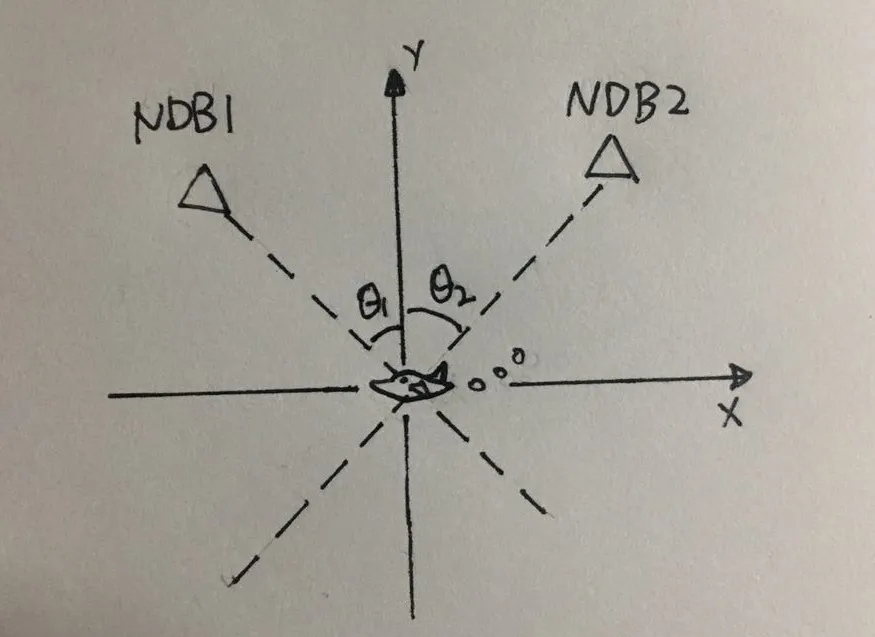 Y
NDB1
NDB2
θ1
θ2
X